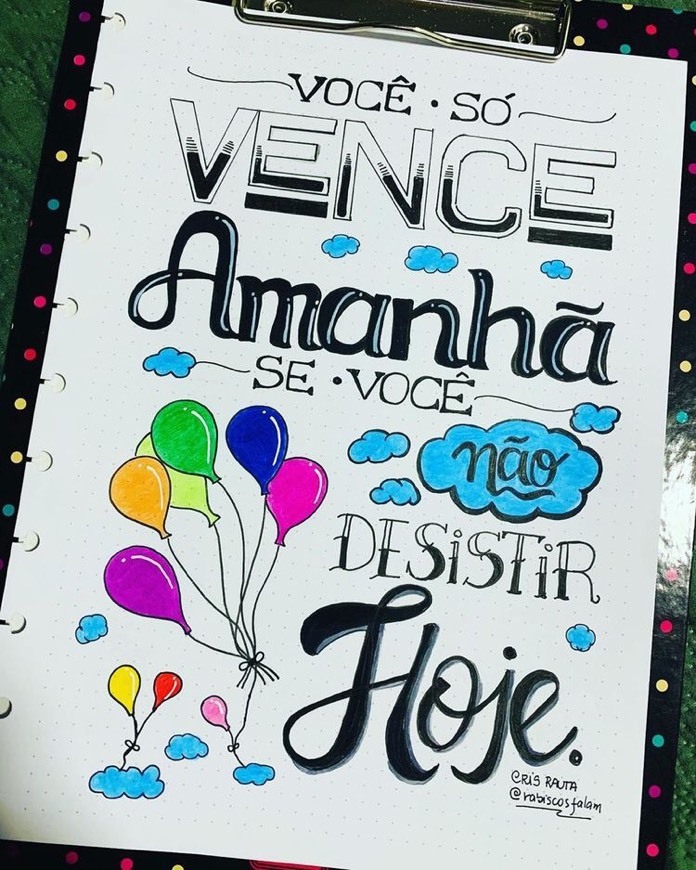 VOCÊ · SÓ
VENCE
Amanhã
SE · VOCÊ
não
DESISTIR
Hoje.
CRIS RAUTA
@rabiscosfalam